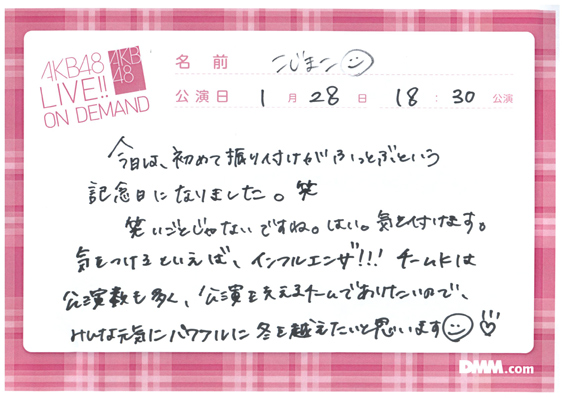 AKB48
LIVE!!
ON DEMAND
AKB
48
名前 こじまこ
公演日 1月28日 18:30公演
今日は、初めて振り付けがふっとぶという
記念日になりました。笑
笑いごとじゃないですね。はい。気を付けます。
気をつけるといえば、インフルエンザ!!! チームKは
公演数も多く、公演を支えるチームでありたいので、
みんな元気にパワフルに冬を越えたいと思います
DMM.com